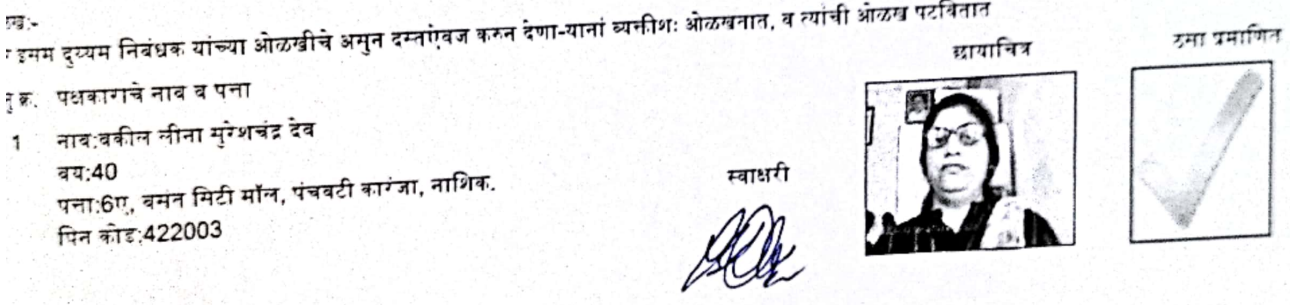 ओळख:-
इसम दुय्यम निबंधक यांच्या ओळखीचे असुन दस्तऐवज करुन देणा-यानां व्यक्तीशः ओळखतात, व त्यांची ओळख पटवितात
छायाचित्र
ठसा प्रमाणित
अनु क्र. पक्षकाराचे नाव व पत्ता
1 नाव:वकील लीना सुरेशचंद्र देव
वय:40
पत्ता:6ए, वसंत सिटी मॉल, पंचवटी कारंजा, नाशिक.
पिन कोड:422003
स्वाक्षरी